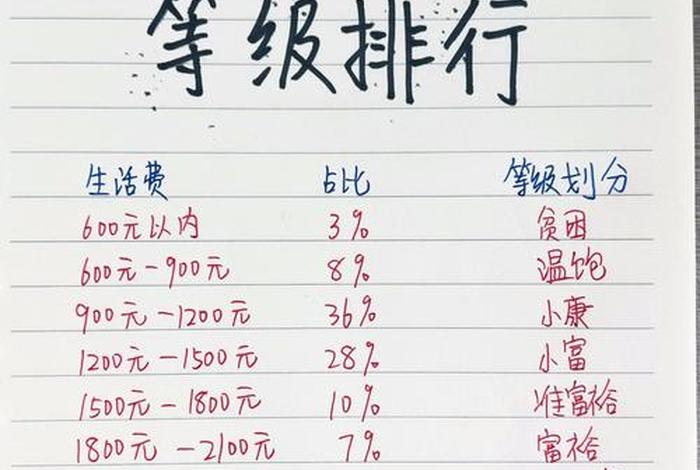 等级排行
生活费 占比 等级划分
600元以内 3% 贫困
600元-900元 8% 温饱
900元-1200元 36% 小康
1200元-1500元 28% 小富
1500元-1800元 10% 准富裕
1800元-2100元 7% 富裕